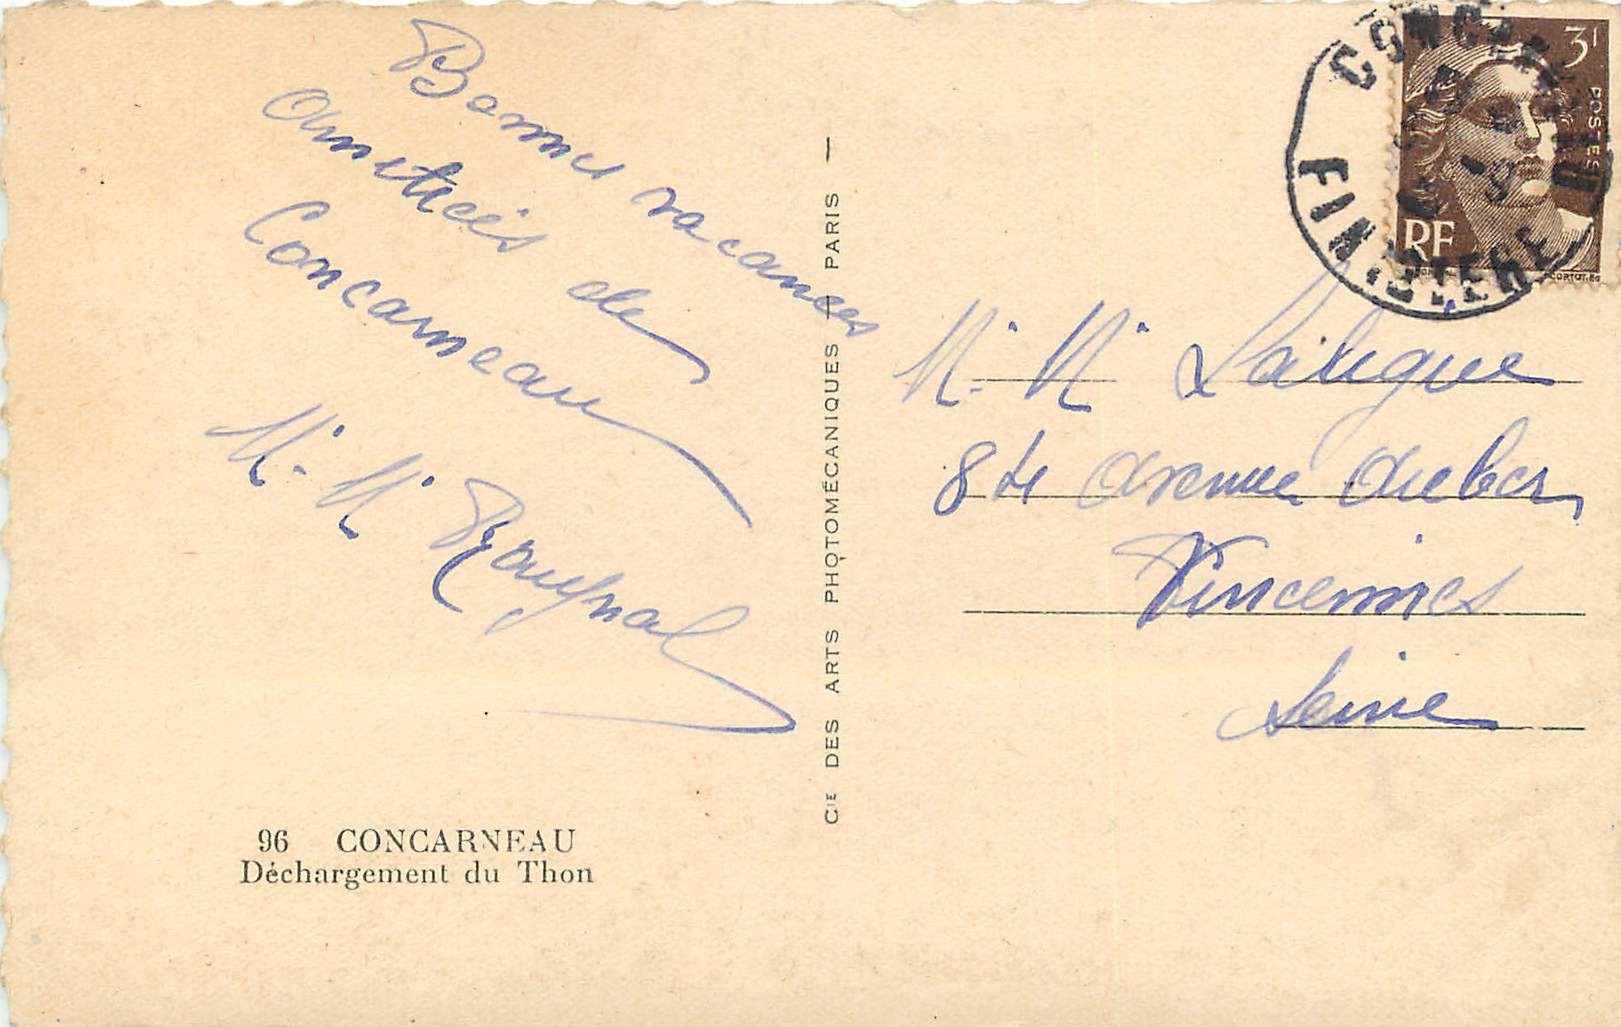 Bonnes vacances
amitiés de
Concarneau
M. Mme Raynal
96 CONCARNEAU
Déchargement du Thon
CIE DES ARTS PHOTOMÉCANIQUES — PARIS —
CONCARNEAU
FINISTERE
3F
POSTES
RF
M. M
avenue Aubert
Vincennes
Seine